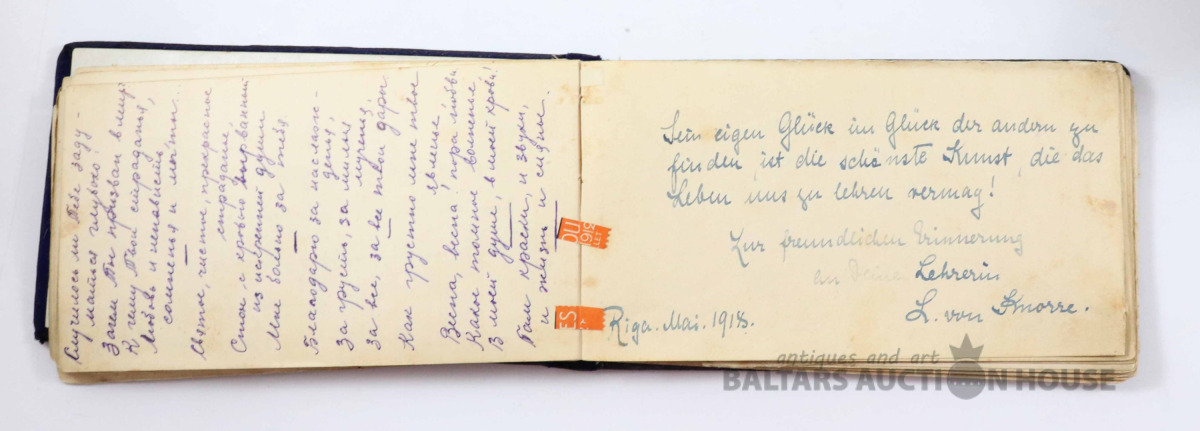 Случилось ли Тебе заду-
маться глубоко:
Зачем Ты призван в мир?
К чему Твои страданья,
Любовь и ненависть,
сомненья и мечты...
Святое, чистое, прекрасное
страданье,
Стон с кровью вырванный
из души
Мне больно за тебя.
Благодарю за наслаж-
денья,
За грусть, за милыя
мученья,
За все, за все твои дары.
Как грустно мне твое
явленье,
Весна, весна! пора любви
Какое томное волненье,
В моей душе, в моей крови!
Там краски, и звуки,
и жизнь и
Sein eigen Glück im Glück der andern zu
finden ist die schönste Kunst, die das
Leben uns zu lehren vermag!
Zur freundlichen Erinnerung
an Deine Lehrerin
L. von Knorre.
Riga. Mai. 1918.
DU
1912
LET
ES
antiques and art
BALTARS AUCTION HOUSE